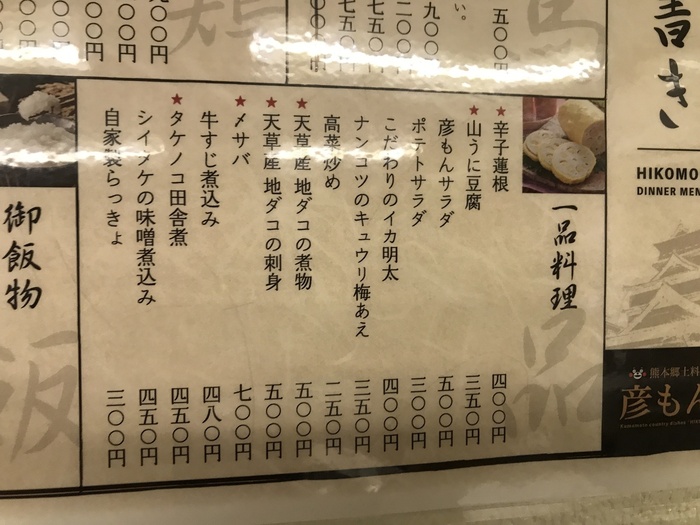 書き
HIKOMO
DINNER MEN
熊本郷土料
彦もん
五〇〇円
い。
一品料理
★辛子蓮根 四〇〇円
★山うに豆腐 三五〇円
彦もんサラダ 五〇〇円
ポテトサラダ 三〇〇円
こだわりのイカ明太 四〇〇円
ナンコツのキュウリ梅あえ 三五〇円
高菜炒め 二五〇円
★天草産 地ダコの煮物 五〇〇円
★天草産 地ダコの刺身 五〇〇円
★〆サバ 七〇〇円
牛すじ煮込み 四八〇円
★タケノコ田舎煮 四五〇円
シイタケの味噌煮込み 四五〇円
自家製らっきょ 三〇〇円
御飯物